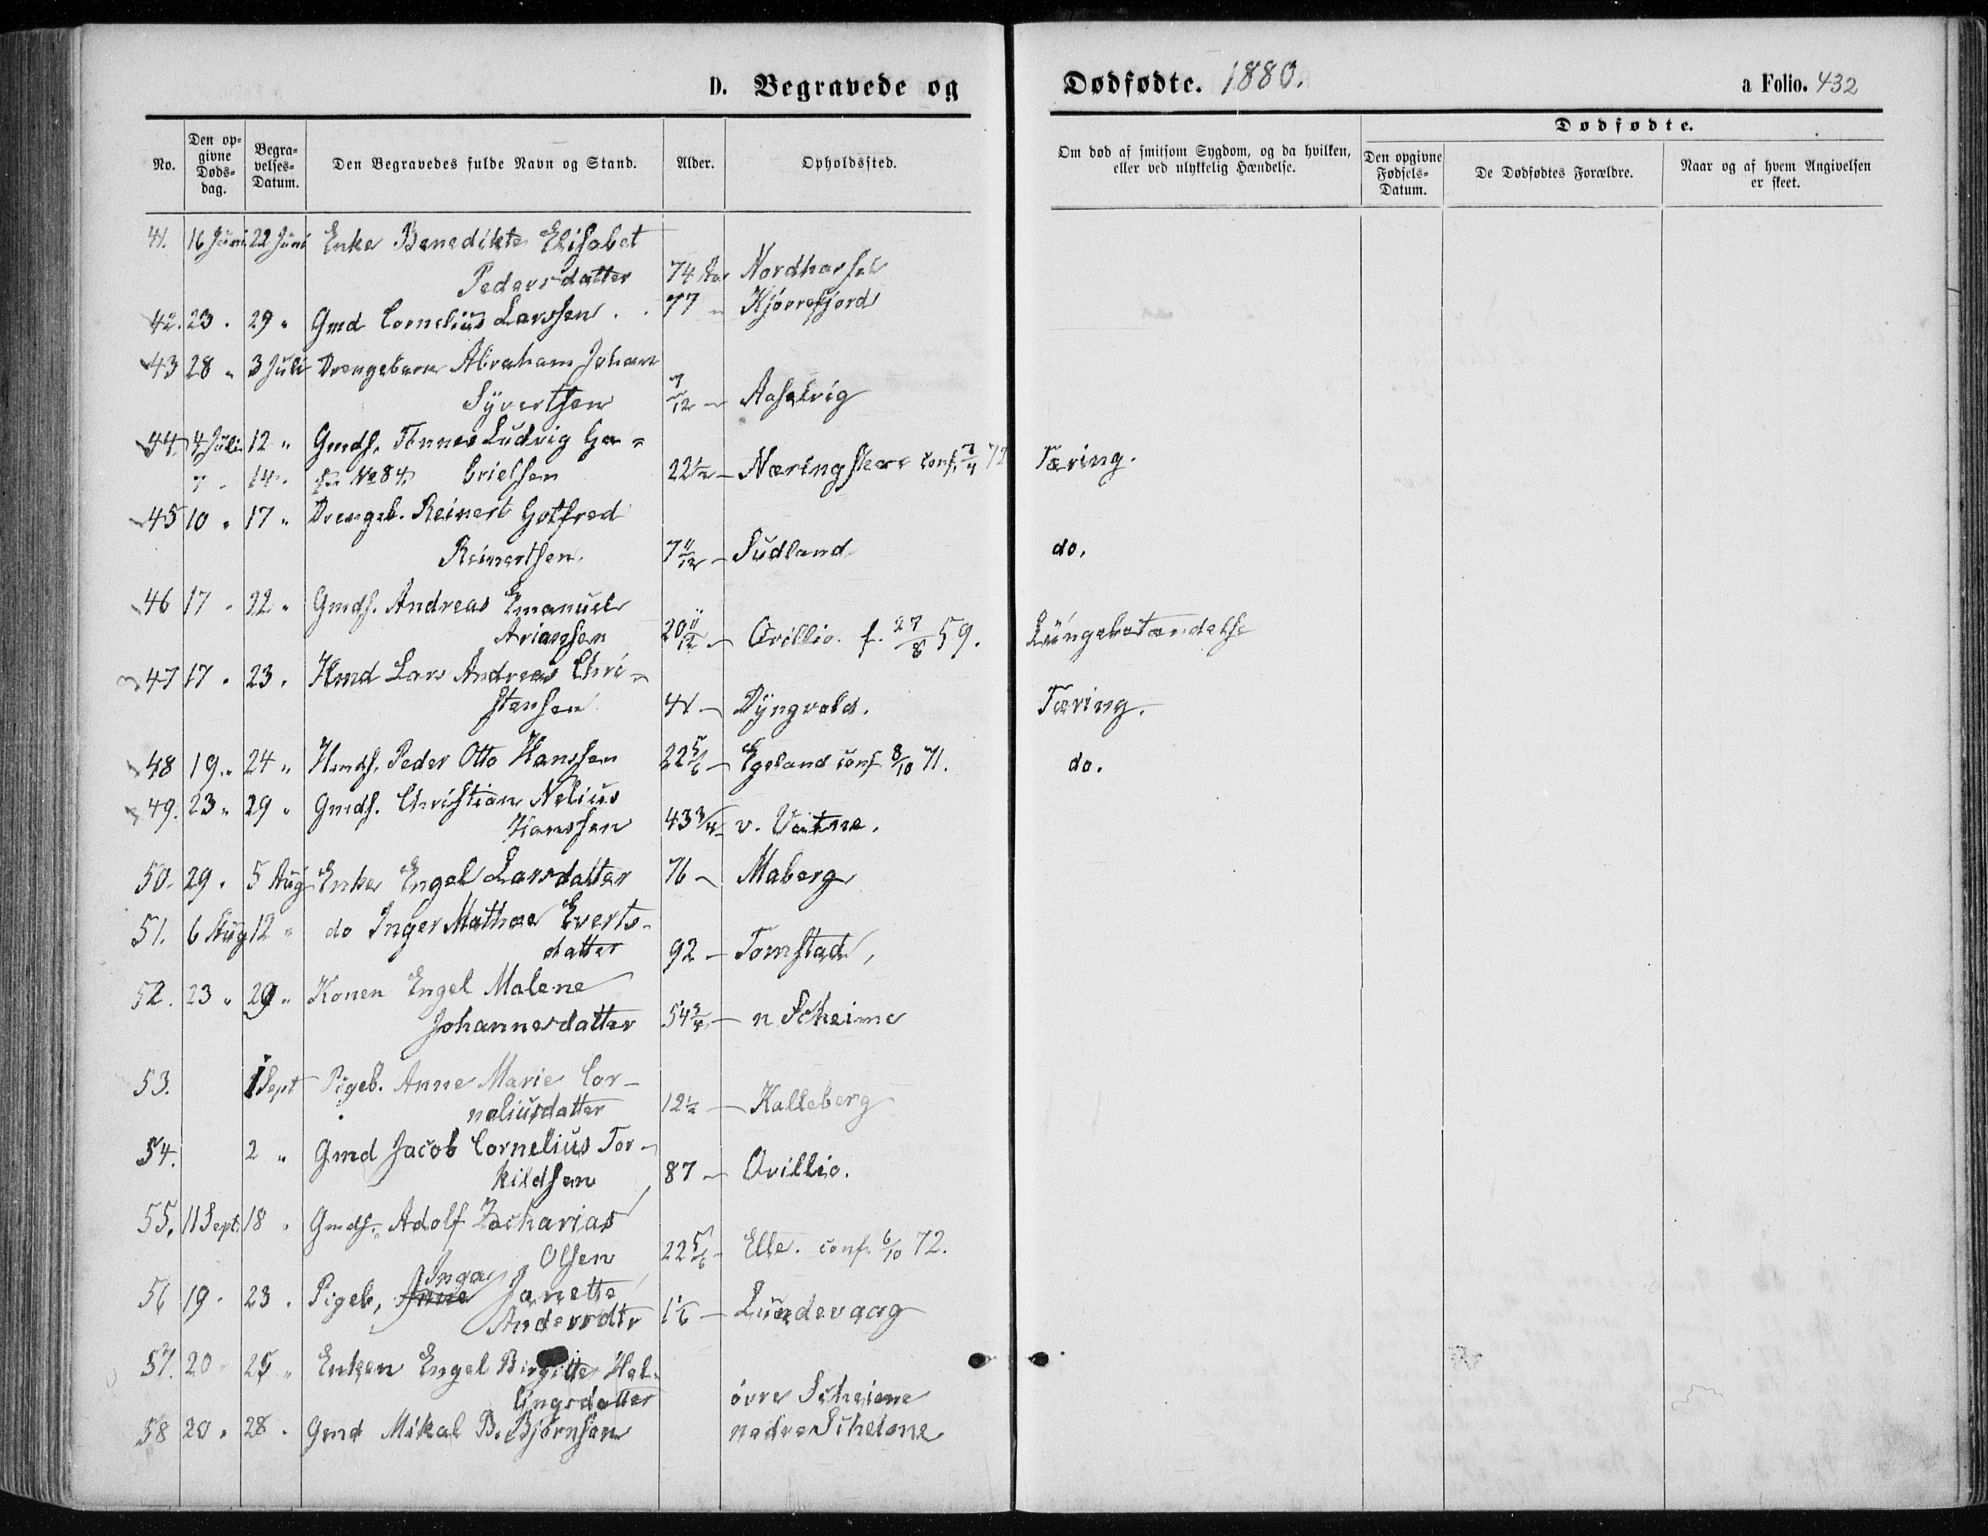 D. Begravede og Dødfødte. 1880. a Folio. 432
No. Den opgivne Dødsdag. Begravelses-Datum. Den Begravedes fulde Navn og Stand. Alder. Opholdssted. Om død af smitsom Sygdom, og da hvilken, eller ved ulykkelig Hændelse. Dødfødte. Den opgivne Fødsels-Datum. De Dødfødtes Forældre. Naar og af hvem Angivelsen er skeet.
41. 16 Juni 22 Juni Enke Benedikte Elisabet
Pedersdatter 74 Aar Nordhassel
42. 23 . 29 " Gmd Cornelius Larssen . . 77 " Kjørrefjord
43 28 " 3 Juli Drengebarn Abraham Johan
Syvertsen 7/12 — Aaselvig
44. 4 Juli 12 " Gmds. Tønnes Ludvig Ga=
7 . 14 " No 84, brielsen 22 1/2 — Næringstere conf. 7/4 72 Tæring.
45 10 " 17 " Drengeb. Reinert Gotfred
Reinertsen. 7 11/12 — Sudland do.
46 17 " 22 " Gmds. Andreas Emanuel
Ariansen 20 11/12 — Ovillio. f. 27/8 59. Lungebetændelse
47 17 " 23 " Hmd Lars Andreas Chri=
stensen 41 — Dyngvold. Tæring.
48 19 " 24 " Hmds. Peder Otto Hanssen 22 5/6 — Egeland conf 8/10 71. do.
49. 23 " 29 " Gmds. Christian Nelius
Hanssen 43 3/4 — v. Vatne.
50. 29 . 5 Aug Enke Engel Larsdatter 76 — Maberg
51. 6 Aug 12 " do Inger Mathea Everts-
datter 92 — Tomstad,
52. 23 " 29 " Konen Engel Malene
Johannesdatter 54 3/4 — n Scheime
53. 1 Sept Pigeb. Anne Marie Cor-
neliusdatter 12 1/2 — Kalleberg
54. 2 " Gmd Jacob Cornelius Tor-
kildsen 87 — Ovillio.
55. 11 Sept. 18 " Gmds. Adolf Zacharias
Olsen 22 5/6 — Elle. conf. 6/10 72.
Inga
56 19 . 23 . Pigeb, Anne Janette
Andersdtr 1 1/6 — Lundevaag
57. 20 " 25 " Enken Engel Birgitte Hel-
lingsdatter øvre Scheime
58 20 . 28 . Gmd Mikal B. Bjørnsen nedre Scheime